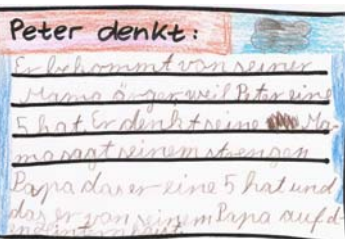 Peter denkt:
Er bekommt von seiner
Mama ärger weil Peter eine
5 hat. Er denkt seine Ma-
ma sagt seinem strengen
Papa das er eine 5 hat und
das er von seinem Papa auf d-
en hintern